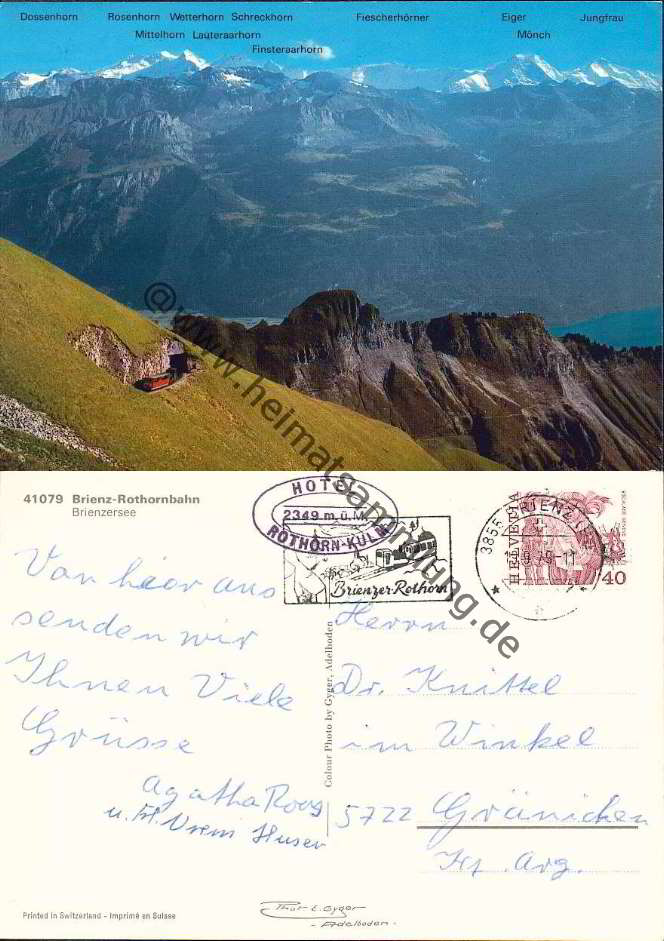 Dossenhorn Rosenhorn Wetterhorn Schreckhorn Fiescherhörner Eiger Jungfrau
Mittelhorn Lauteraarhorn Mönch
Finsteraarhorn
@www.heimatsammlung.de
41079 Brienz-Rothornbahn
Brienzersee
HOTEL
2349 m.ü.M.
ROTHORN-KULM
Brienzer-Rothorn
3855 BRIENZ
HELVETIA
40
Von hier aus
senden wir
Ihnen Viele
Grüsse
Agatha Roos
u. Vreni Huser
Colour Photo by Gyger, Adelboden
Herrn
Dr. Knittel
im Winkel
5722 Gränichen
Kt. Arg.
Printed in Switzerland - Imprimé en Suisse
Gyger
- Adelboden -